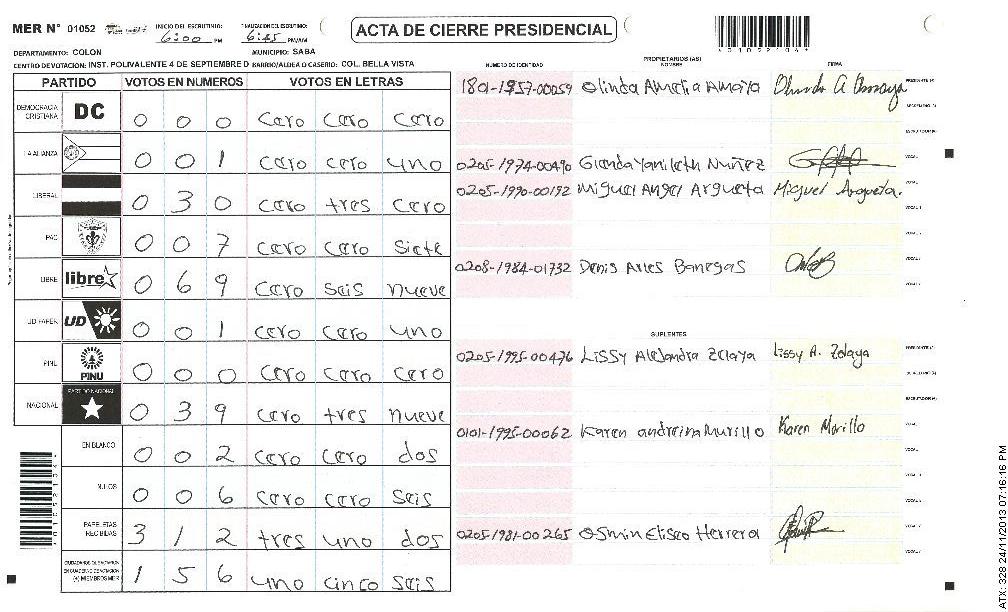 MER N° 01052 INICIO DEL ESCRUTINIO: 6:00 PM FINALIZACION DEL ESCRUTINIO: 6:45 PM/AM
ACTA DE CIERRE PRESIDENCIAL
DEPARTAMENTO: COLON MUNICIPIO: SABA
CENTRO DEVOTACIÓN: INST. POLIVALENTE 4 DE SEPTIEMBRE D BARRIO/ALDEA O CASERIO: COL. BELLA VISTA
PARTIDO VOTOS EN NUMEROS VOTOS EN LETRAS
DEMOCRACIA CRISTIANA DC 0 0 0 cero cero cero
LA ALIANZA 0 0 1 cero cero uno
LIBERAL 0 3 0 cero tres cero
PAC 0 0 7 cero cero siete
LIBRE libre 0 6 9 cero seis nueve
UD FAPER UD 0 0 1 cero cero uno
PINU PINU 0 0 0 cero cero cero
NACIONAL PARTIDO NACIONAL 0 3 9 cero tres nueve
EN BLANCO 0 0 2 cero cero dos
NULOS 0 0 6 cero cero seis
PAPELETAS RECIBIDAS 3 1 2 tres uno dos
(+) MIEMBROS MER 1 5 6 uno cinco seis
NUMERO DE IDENTIDAD PROPIETARIOS (AS) NOMBRE FIRMA
1801-1957-00059 Olinda Amelia Amaya Olinda A Amaya
0205-1974-00490 Glenda Yanileth Nuñez
0205-1990-00192 Miguel Angel Argueta Miguel Argueta.
0208-1984-01732 Denis Aries Banegas
SUPLENTES
0205-1995-00476 Lissy Alejandra Zelaya Lissy A. Zelaya
0101-1995-00062 Karen andreina Murillo Karen Murillo
0205-1981-00265 Osmin Eliseo Herrera
ATX: 328 24/11/2013 07:16:16 PM